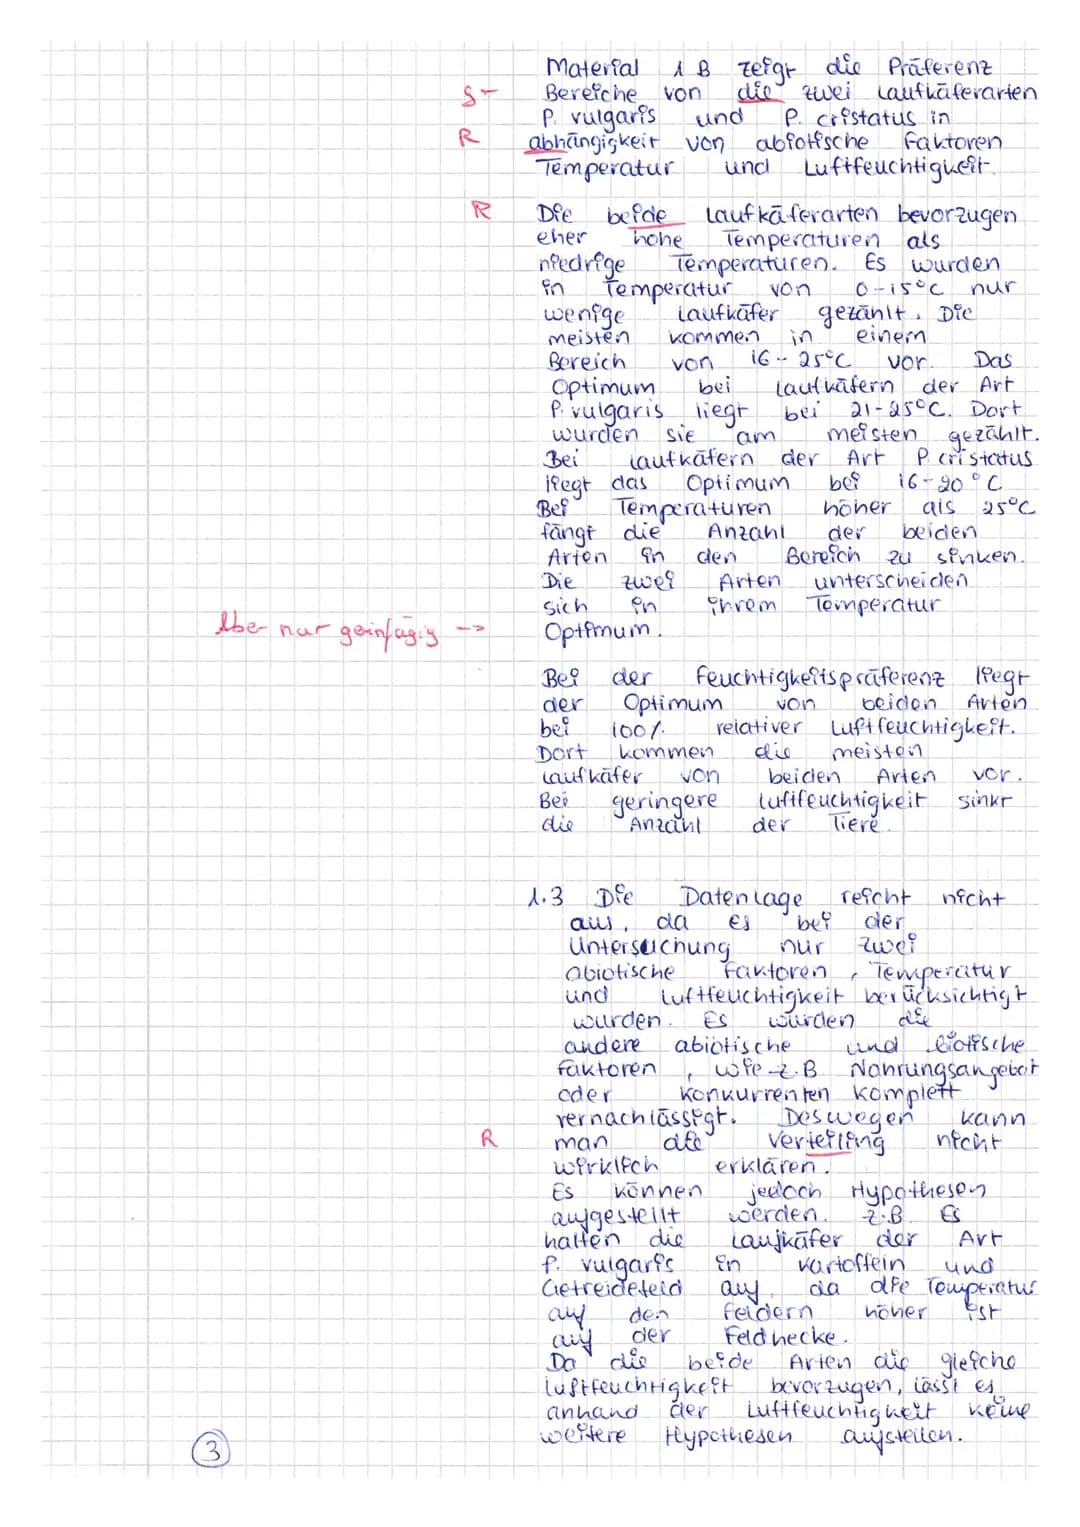 Material 1 B zeigt die Präferenz
S- Bereiche von die zwei Laufkäferarten
P. vulgaris und P. cristatus in
R abhängigkeit von abiotische Faktoren
Temperatur und Luftfeuchtigkeit.
R Die beide Laufkäferarten bevorzugen
eher hohe Temperaturen als
niedrige Temperaturen. Es wurden
in Temperatur von 0-15°C nur
wenige Laufkäfer gezählt. Die
meisten kommen in einem
Bereich von 16-25°C vor. Das
Optimum bei Laufkäfern der Art
P. vulgaris liegt bei 21-25°C. Dort
wurden sie am meisten gezählt.
Bei Laufkäfern der Art P. cristatus
liegt das Optimum bei 16-20°C
Bei Temperaturen höher als 25°C
fängt die Anzahl der beiden
Arten in den Bereich zu sinken.
Die zwei Arten unterscheiden
sich in ihrem Temperatur
Aber nur geinfügig --> Optimum.
Bei der Feuchtigkeitspräferenz liegt
der Optimum von beiden Arten
bei 100% relativer Luftfeuchtigkeit.
Dort kommen die meisten
Laufkäfer von beiden Arten vor.
Bei geringere Luftfeuchtigkeit sinkt
die Anzahl der Tiere.
1.3 Die Datenlage reicht nicht
aus, da es bei der
Untersuchung nur zwei
abiotische Faktoren, Temperatur
und Luftfeuchtigkeit berücksichtigt
wurden. Es wurden die
andere abiotische und biotische
Faktoren, wie z.B Nahrungsangebot
oder Konkurrenten komplett
vernachlässigt. Deswegen kann
R man die Verteiling nicht
wirklich erklären.
Es können jedoch Hypothesen
aufgestellt werden. z.B. Es
halten die Laufkäfer der Art
P. vulgaris in Kartoffeln und
Getreidefeld auf, da die Temperatur
auf den Feldern höher ist
auf der Feldhecke.
Da die beide Arten die gleiche
Luftfeuchtigkeit bevorzugen, lässt es
anhand der Luftfeuchtigkeit keine
weitere Hypothesen aufstellen.
3